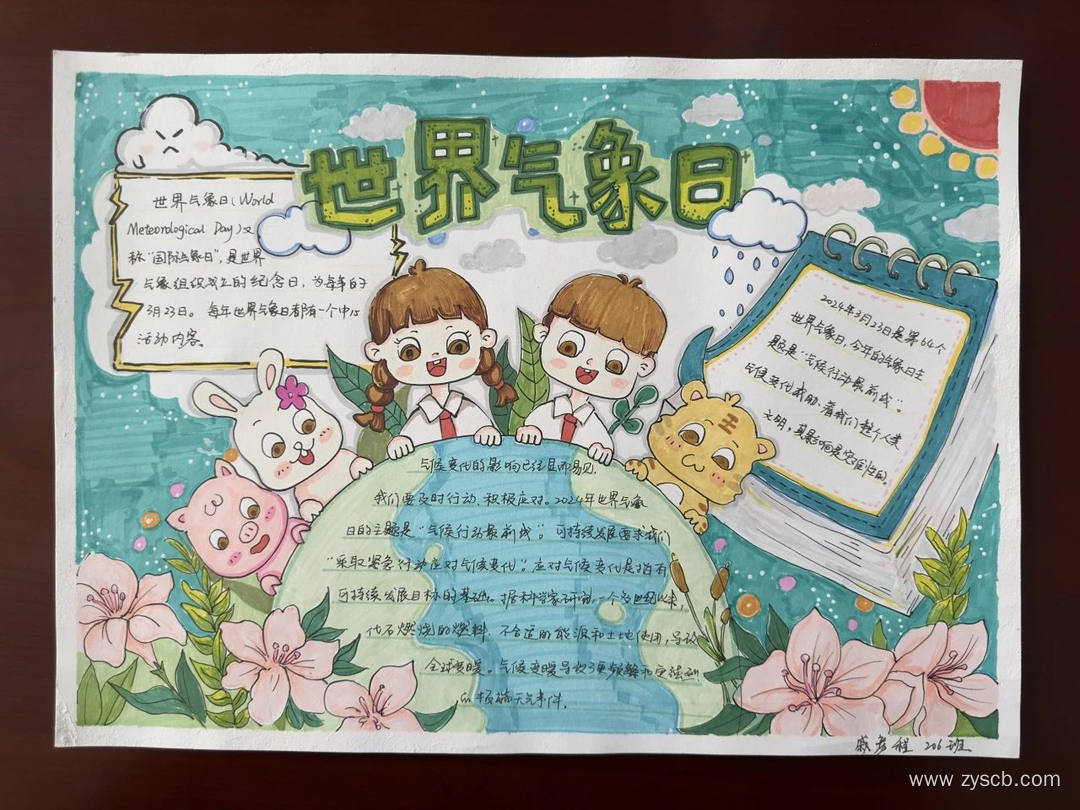 世界气象日
世界气象日(World
Meteorological Day)又
称"国际气象日",是世界
气象组织成立的纪念日,为每年的
3月23日。每年世界气象日都有一个中心
活动内容
2024年3月23日是第64个
世界气象日,今年的气象日主
题是:"气候行动最前线"。
气候变化威胁着我们整个人类
文明,其影响是灾难性的
气候变化的影响已经显而易见
我们要及时行动、积极应对。2024年世界气象
日的主题是"气候行动最前线"。可持续发展要求我们
"采取紧急行动应对气候变化"。应对气候变化是所有
可持续发展目标的基础。据科学家研究,一个多世纪以来,
化石燃烧的燃料 不合适的能源和土地使用,导致
全球变暖。气候变暖导致了更频繁和更强烈
的极端天气事件.
程 206班
www.zyscb.com